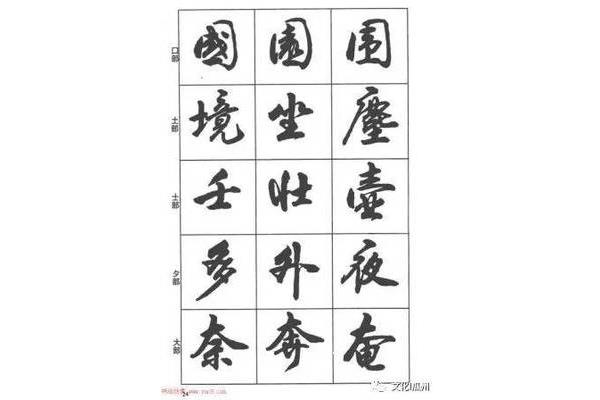 口部 國 園 围
土部 境 坐 塵
士部 壬 壮 壺
夕部 多 外 夜
大部 奈 奔 奄
24
文化瓜州